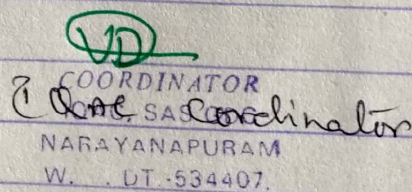 VD
COORDINATOR
SAS
Coordinator
NARAYANAPURAM
W. . DT -534407.